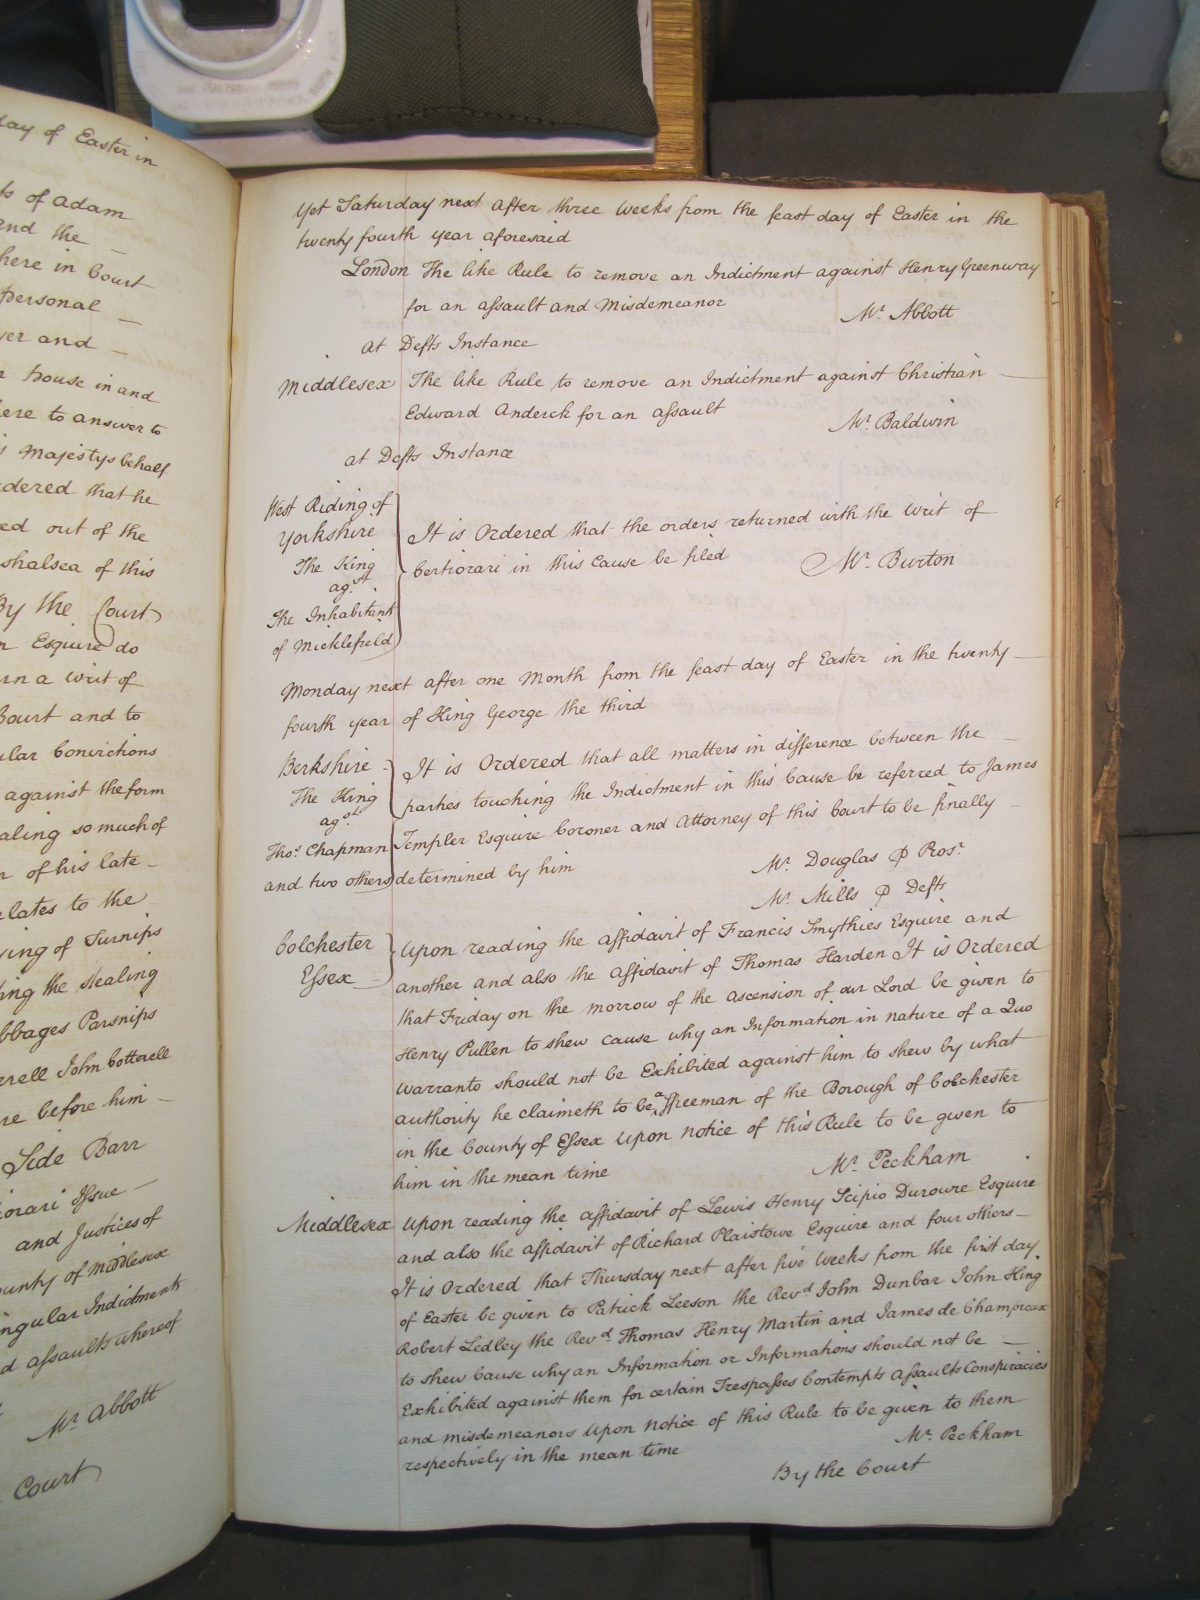 day of Easter in
ts of Adam
and the
here in Court
personal
yer and
r house in and
here to answer to
s Majestys behalf
rdered that he
ed out of the
shalsea of this
By the Court
n Esquire do
urn a Writ of
Court and to
ular Convictions
against the form
aling so much of
r of his late
elates to the
ying of Turnips
hing the stealing
bbages Parsnips
rrell John Cottrell
re before him
Side Barr
iorari Issue
and Justices of
ounty of Middlesex
ngular Indictments
d assaults whereof
Mr. Abbott
Court
Yet Saturday next after three Weeks from the feast day of Easter in the
twenty fourth year aforesaid
London The like Rule to remove an Indictment against Henry Greenway
for an assault and Misdemeanor
Mr. Abbott
at Defts Instance
Middlesex The like Rule to remove an Indictment against Christian
Edward Anderck for an assault
Mr. Baldwin
at Defts Instance
West Riding of
Yorkshire
The King
agst.
The Inhabitants
of Micklefield
It is Ordered that the orders returned with the Writ of
Certiorari in this Cause be filed
Mr. Burton
Monday next after one Month from the feast day of Easter in the twenty
fourth year of King George the third
Berkshire
The King
agst.
Thos. Chapman
and two others
It is Ordered that all matters in difference between the
parties touching the Indictment in this Cause be referred to James
Templer Esquire Coroner and Attorney of this Court to be finally
determined by him
Mr. Douglas P Rosr.
Mr. Mills P Defts
Colchester
Essex
Upon reading the affidavit of Francis Smythies Esquire and
another and also the Affidavit of Thomas Harden It is Ordered
that Friday on the morrow of the Ascension of our Lord be given to
Henry Pullen to shew cause why an Information in nature of a Quo
Warranto should not be Exhibited against him to shew by what
authority he claimeth to be a ffreeman of the Borough of Colchester
in the County of Essex Upon notice of this Rule to be given to
him in the mean time
Mr. Peckham
Middlesex Upon reading the affidavit of Lewis Henry Scipio Duroure Esquire
and also the affidavit of Richard Plaistowe Esquire and four others
It is Ordered that Thursday next after five Weeks from the first day
of Easter be given to Patrick Leeson the Revd John Dunbar John King
Robert Ledley the Revd. Thomas Henry Martin and James de Champreux
to shew Cause why an Information or Informations should not be
Exhibited against them for certain Trespasses Contempts Assaults Conspiracies
and misdemeanors Upon notice of this Rule to be given to them
respectively in the mean time
Mr. Peckham
By the Court